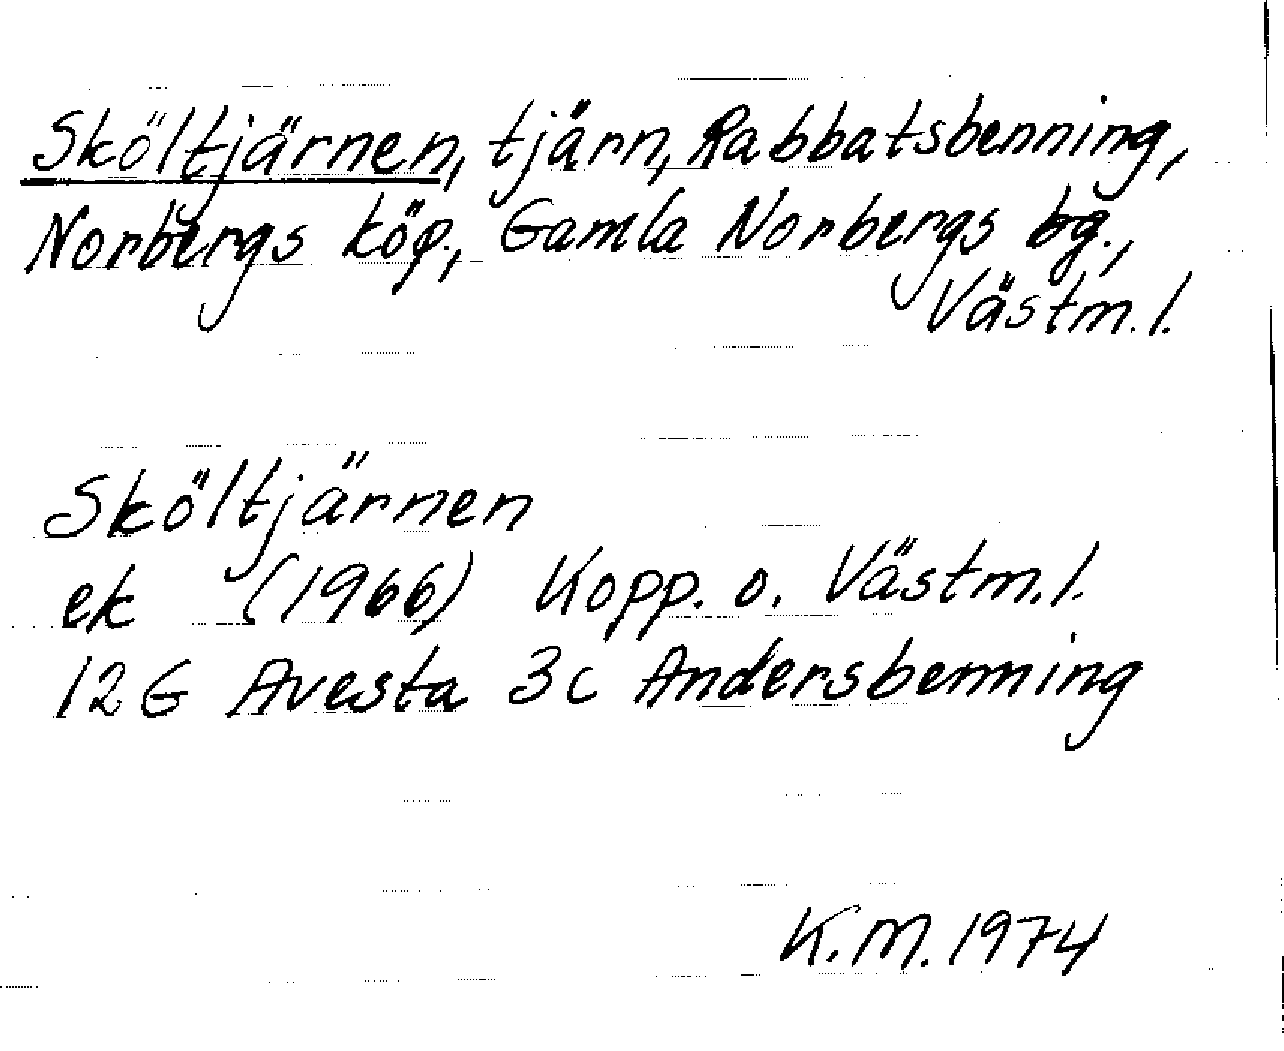 Sköltjärnen, tjärn, Rabbatsbenning,
Norbergs köp., Gamla Norbergs bg.,
Västm. l.
Sköltjärnen
ek (1966) Kopp. o. Västm. l.
12 G Avesta 3c Andersbenning
K. M. 1974